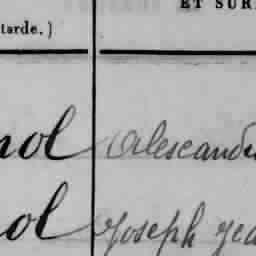 ET SUR
tarde.)
nol Alescandr
ol Joseph Jea